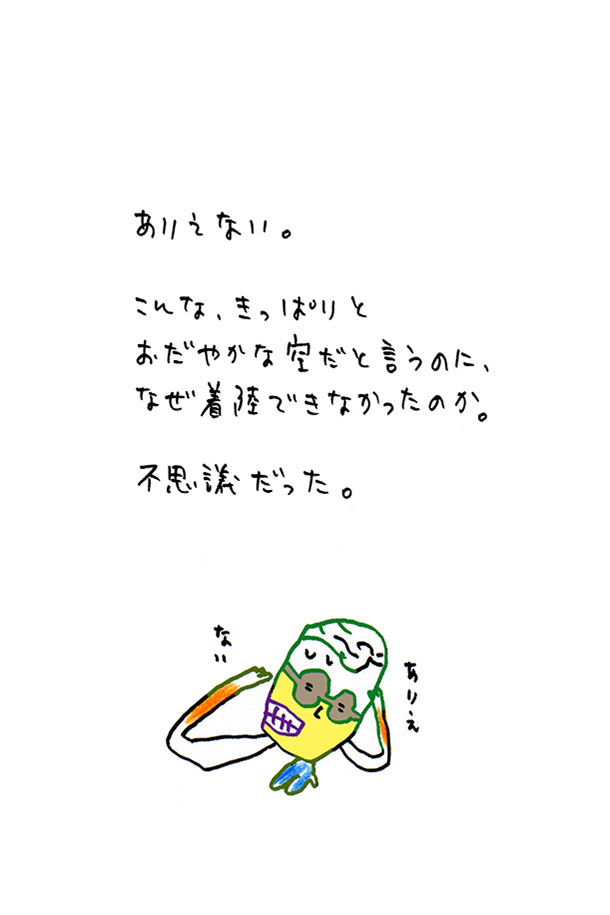 ありえない。
こんな、きっぱりと
おだやかな空だと言うのに、
なぜ着陸できなかったのか。
不思議だった。
ありえ
ない